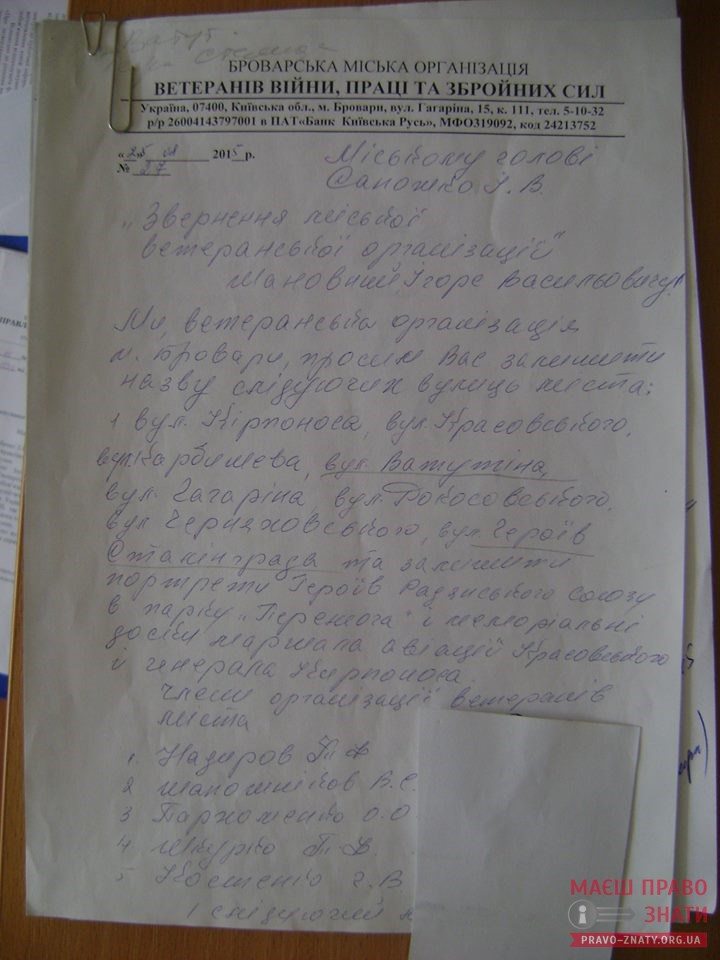 БРОВАРСЬКА МІСЬКА ОРГАНІЗАЦІЯ
ВЕТЕРАНІВ ВІЙНИ, ПРАЦІ ТА ЗБРОЙНИХ СИЛ
Україна, 07400, Київська обл., м. Бровари, вул. Гагаріна, 15, к. 111, тел. 5-10-32
р/р 26004143797001 в ПАТ«Банк Київська Русь», МФО319092, код 24213752
«25» 08 2015 р.
№ 27
Міському голові
Сапожко І. В.
„Звернення міської
ветеранської організацій"
Шановний Ігоре Васильовичу!
Ми, ветеранська організація
м. Бровари, просим Вас залишити
назву слідуючих вулиць міста:
1 вул. Кірпоноса, вул. Красовського,
вул. Карбишева, вул. Ватутіна,
вул. Гагаріна, вул. Рокосовського,
вул Черняховського, вул. Героїв
Сталінграда та залишити
портрети Героїв Радянського союзу
в парку „Перемога" і меморіальні
доски маршала авіації Красовського
й генерала Кирпоноса
Члени організації ветеранів
міста
1. Надиров П. Ф
2 Шапошніков В. Є.
3 Пархоменко О. О
4 Шкурко П. Ф.
5 Костенко Г. В
1 слідуючий
МАЄШ ПРАВО
ЗНАТИ
PRAVO-ZNATY.ORG.UA